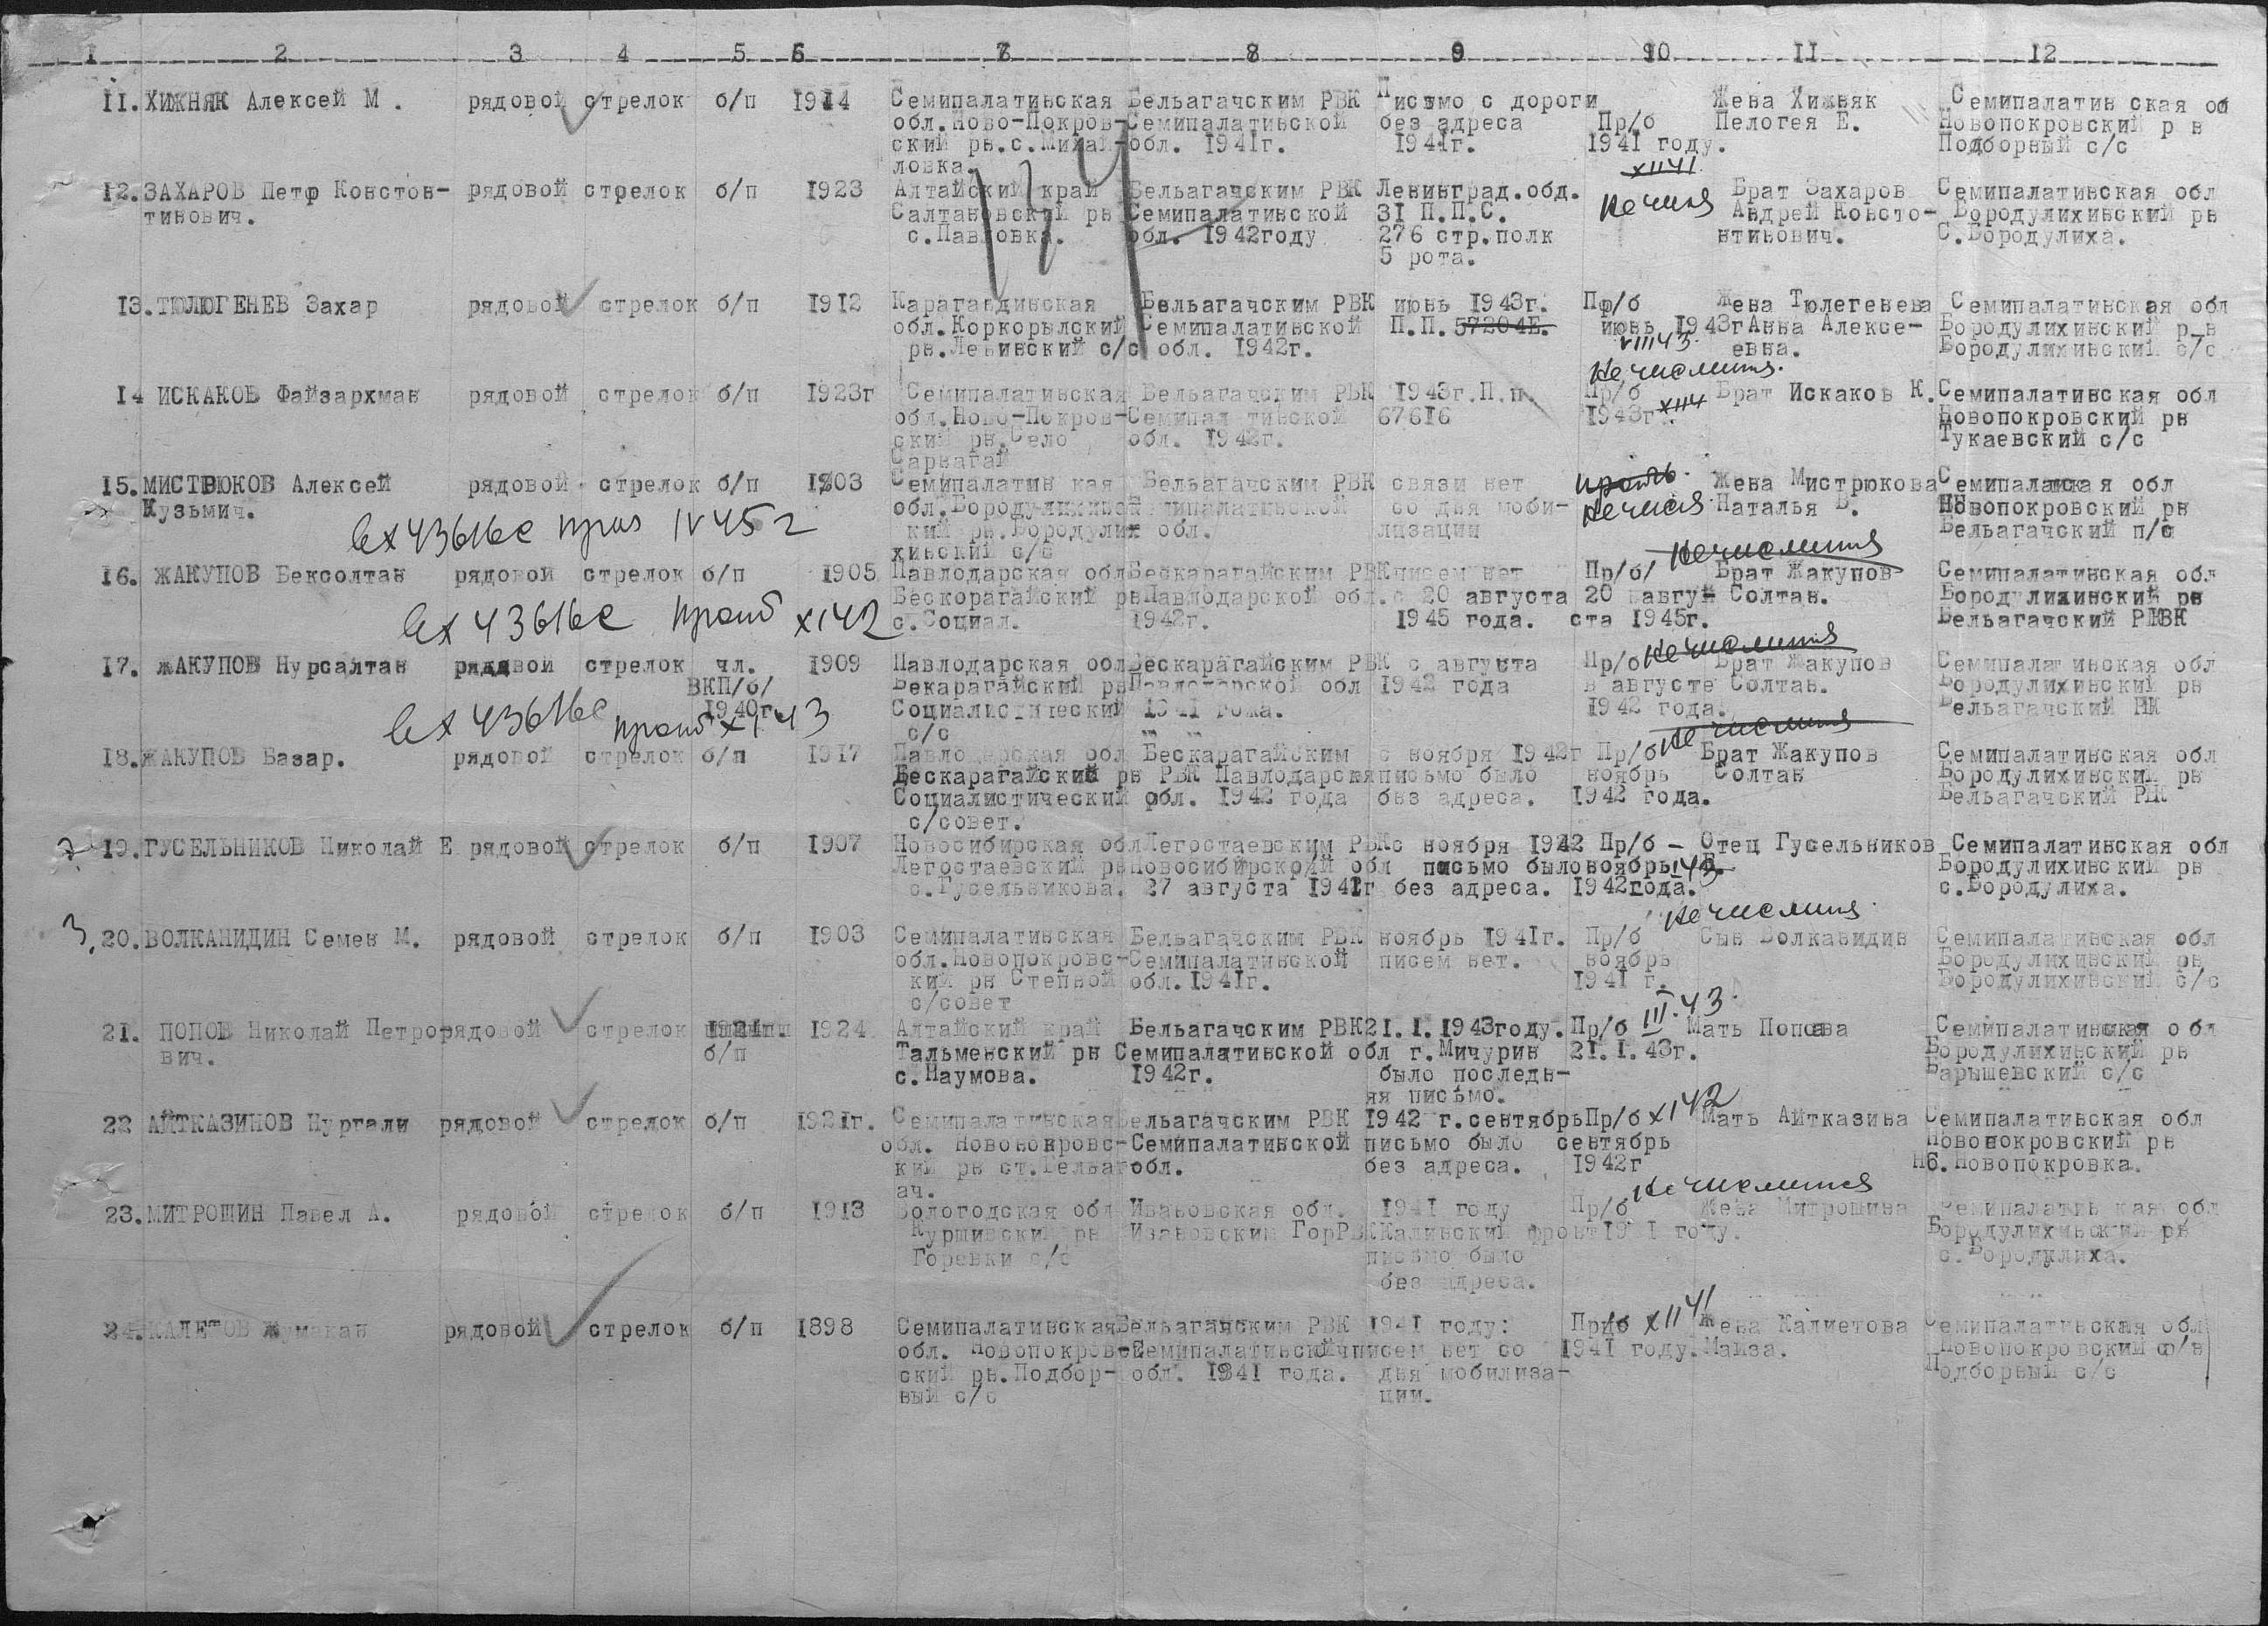 1 2 3 4 5 6 7 8 9 10 11 12
11. ХИЖНЯК Алексей М. рядовой стрелок б/п 1914 Семипалатинская Бельагачским РВК Письмо с дороги Жена Хижняк Семипалатин ская об
обл.Ново-Покров- Семипалатинской без адреса Пр/б Пелогея Е. Новопокровский р н
ский рн.с.Михай- обл. 1941г. 1941г. 1941 году. Подборный с/с
ловка. XII 41
12. ЗАХАРОВ Петр Констон- рядовой стрелок б/п 1923 Алтайский край Бельагачским РВК Ленинград.обд. Брат Захаров Семипалатинская обл
тинович. Салтановский рн Семипалатинской 31 П.П.С. Андрей Консто- Бородулихинский рн
с.Павловка. обл. 1942году 276 стр.полк нтинович. С.Бородулиха.
5 рота.
13. ТЮЛЮГЕНЕВ Захар рядовой стрелок б/п 1912 Карагандинская Бельагачским РВК июнь 1943г. Пр/б Жена Тюлегенева Семипалатинская обл
обл.Коркорылский Семипалатинской П.П. 57204Е. июнь 1943г Анна Алексе- Бородулихинский р-н
рн.Ленинский с/с обл. 1942г. VIII 43. евна. Бородулихинский с/с
не числится.
14 ИСКАКОВ Файзархман рядовой стрелок б/п 1923г Семипалатинская Бельагачским РВК 1943г.П.п. Пр/б Брат Искаков К. Семипалатинская обл
обл.Ново-Покров- Семипал тинской 67616 1943г Новопокровский рн
ский рн.Село обл. 1942г. Тукаевский с/с
Сарнагай
15. МИСТРЮКОВ Алексей рядовой стрелок б/п 1903 Семипалатин кая Бельагачским РВК связи нет Жена Мистрюкова Семипалатинская обл
Кузьмич. со дня моби- Наталья В. Новопокровский рн
кий рн.Бородули обл. лизации Бельагачский п/с
хинский с/с
вх 43616с проп IV 45 г
не числится
16. ЖАКУПОВ Бексолтан рядовой стрелок б/п 1905 Павлодарская обл Бескарагайским РВК писем нет Пр/б/ Брат Жакупов Семипалатинская обл
Бескорагайский рн Павлодарской обл. с 20 августа 20 авгу Солтан. Бородулихинский рн
с.Социал. 1942г. 1945 года. ста 1945г. Бельагачский РВК
вх 43616с проп б XI 42
не числится
17. ЖАКУПОВ Нурсалтан рядовой стрелок чл. 1909 Павлодарская обл Бескарагайским РВК с августа Пр/б Брат Жакупов Семипалатинская обл
ВКП/б/ Бекарагайский рн Павлодарской обл 1942 года в августе Солтан. Бородулихинский рн
1940г. Социалистический 1941 года. 1942 года. Бельагачский РК
с/с
вх 43616с проп б XI 43
не числится
18. ЖАКУПОВ Базар. рядовой стрелок б/п 1917 Павлодарская обл Бескарагайским с ноября 1942г Пр/б Брат Жакупов Семипалатинская обл
Бескарагайский рн РВК Павлодарския письмо было ноябрь Солтан Бородулихинский рн
Социалистический обл. 1942 года без адреса. 1942 года. Бельагачский РК
с/совет.
19. ГУСЕЛЬНИКОВ Николай Е рядовой стрелок б/п 1907 Новосибирская обл Легостаевским РВК с ноября 1942 Пр/б - Отец Гусельников Семипалатинская обл
Легостаевский рн Новосибирской обл письмо было ноябрь I 43 Бородулихинский рн
с.Гусельникова. 27 августа 1942г без адреса. 1942года. с.Бородулиха.
не числится.
3, 20. ВОЛКАНИДИН Семен М. рядовой стрелок б/п 1903 Семипалатинская Бельагачским РВК ноябрь 1941г. Пр/б Сын Волканидин Семипалатинская обл
обл.Новопокровс- Семипалатинской писем нет. ноябрь Бородулихинский рн
кий рн Степной обл.1941г. 1941 г. Бородулихинский с/с
с/совет
21. ПОПОВ Николай Петро рядовой стрелок 1924 Алтайский край Бельагачским РВК 21.1.1943году. Пр/б III.43. Мать Попова Семипалатинская обл
вич. б/п Тальменский рн Семипалатинской обл г.Мичурин 21.1.43г. Бородулихинский рн
с.Наумова. 1942г. было последн- Барышевский с/с
яя письмо.
22 АЙТКАЗИНОВ Нургали рядовой стрелок б/п 1921г. Семипалатинская Бельагачским РВК 1942 г.сентябрь Пр/б XI 42 Мать Айтказина Семипалатинская обл
обл. Новопокровс- Семипалатинской письмо было сентябрь Новопокровский рн
кий рн ст.Бельаг обл. без адреса. 1942г Н6.Новопокровка.
ач.
не числится
23. МИТРОШИН Павел А. рядовой стрелок б/п 1913 Вологодская обл Ивановская обл. 1941 году Пр/б Жена Митрошина Семипалатин кая обл
Куршивский рн Ивановским ГорРВК Калинский фронт 19 1 году. Бородулихинский рн
Горевки с/с письмо было с.Бородулиха.
без адреса.
24. КАЛЕТОВ Жумакан рядовой стрелок б/п 1898 Семипалатинская Бельагачским РВК 1941 году: Пр/б XII 41 Жена Калиетова Семипалатинская обл
обл. Новопокров- Семипалатинской писем нет со 1941 году. Майза. Новопокровский р/н
ский рн.Подбор- обл. 1941 года. дня мобилиза- Подборный с/с
ный с/с ции.